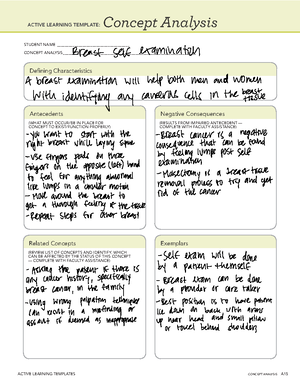 ACTIVE LEARNING TEMPLATE: Concept Analysis
STUDENT NAME
CONCEPT ANALYSIS Breast Self examination
Defining Characteristics
A breast examination will help both men and women
with identifying any cancerous cells in the breast
tissue
Antecedents
(WHAT MUST OCCUR/BE IN PLACE FOR
CONCEPT TO EXIST/FUNCTION PROPERLY)
- You want to start with the
right breast while laying supine
- Use fingers pads on three
fingers of the opposite (left) hand
to feel for anything abnormal
like lumps in a circular motion
- Move around the breast to
get a thorough feeling of the tissue
- Repeat steps for other breast
Negative Consequences
(RESULTS FROM IMPAIRED ANTECEDENT —
COMPLETE WITH FACULTY ASSISTANCE)
- Breast cancer is a negative
consequence that can be found
by feeling lumps post self
examination
- Masectomy is a breast tissue
removal process to try and get
rid of the cancer
Related Concepts
(REVIEW LIST OF CONCEPTS AND IDENTIFY, WHICH
CAN BE AFFECTED BY THE STATUS OF THIS CONCEPT
— COMPLETE WITH FACULTY ASSISTANCE)
- Asking the patient if there is
any cancer history, specifically
breast cancer, in the family
- Using wrong palpation technique
can result in a
assault if deemed as inappropriate
Exemplars
- Self exam will be done
by a patient themself
- Breast exam can be done
by a provider or care taker
- Best position is to have patient
lie down on back, with arms
up near head and small pillow
or towel behind shoulder
ACTIVE LEARNING TEMPLATES
CONCEPT ANALYSIS A15